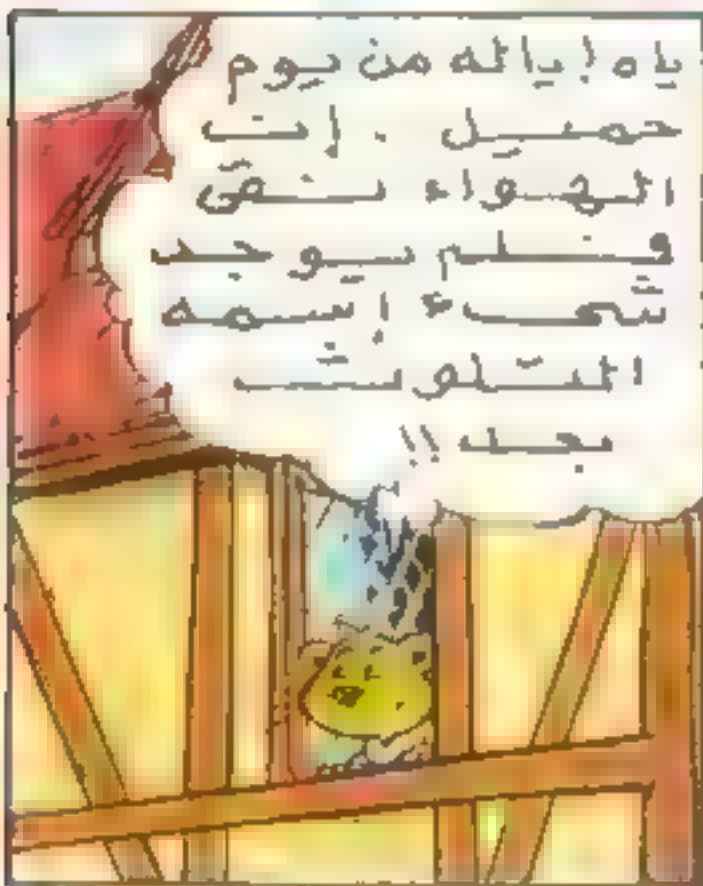 ياه ! ياله من يوم
جميل . إن
الهواء نقى
فلم يوجد
شىء إسمه
التلوث
بعد !!